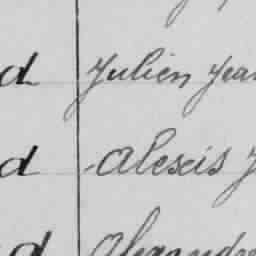 d Julien Jean
d Alexis J
d Alexandre